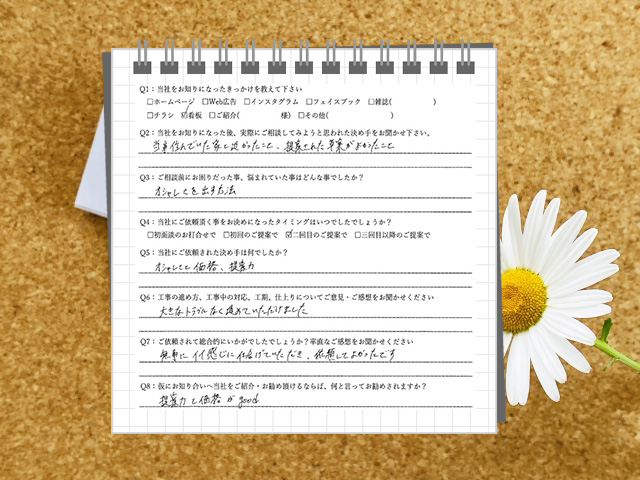 Q1：当社をお知りになったきっかけを教えて下さい
□ホームページ □Web広告 □インスタグラム □フェイスブック □雑誌( )
□チラシ ☑看板 □ご紹介( 様) □その他( )
Q2：当社をお知りになった後、実際にご相談してみようと思われた決め手をお聞かせ下さい。
当事住んでいた家と近かったこと、提案された草案がよかったこと
Q3：ご相談前にお困りだった事、悩まれていた事はどんな事でしたか？
オシャレさを出す方法
Q4：当社にご依頼頂く事をお決めになったタイミングはいつでしたでしょうか？
□初面談のお打合せで □初回のご提案で ☑二回目のご提案で □三回目以降のご提案で
Q5：当社にご依頼された決め手は何でしたか？
オシャレさと価格、提案力
Q6：工事の進め方、工事中の対応、工期、仕上りについてご意見・ご感想をお聞かせください
大きなトラブルなく進めていただけました
Q7：ご依頼されて総合的にいかがでしたでしょうか？率直なご感想をお聞かせください
無事にイイ感じに仕上げていただき、依頼してよかったです
Q8：仮にお知り合いへ当社をご紹介・お勧め頂けるならば、何と言ってお勧めされますか？
提案力と価格がgood